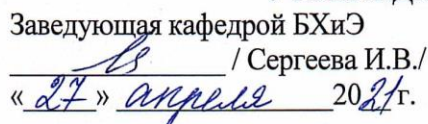 Заведующая кафедрой БХиЭ
/ Сергеева И.В./
« 27 » апреля 2021г.